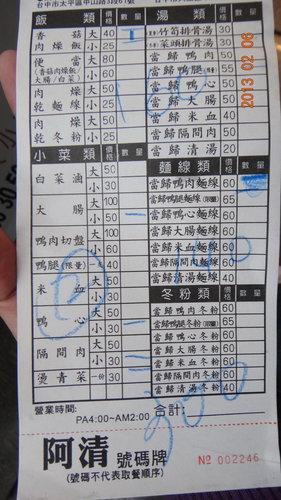 台中市太平區中山路3段61號
飯類 價格 數量
香菇肉燥飯 大 40
小 25
便當 大 80
(香菇肉燥飯/大腸/白菜) 小 60
肉燥乾麵線 大 40
小 25
肉燥乾冬粉 大 40
小 25
小菜類 價格 數量
白菜滷 大 50
小 30
大腸 大 100
小 50
鴨肉切盤 大 100
小 60
鴨腿(限量) 一 40
米血 大 50
小 30
鴨心 大 50
小 30
隔間肉 大 50
小 30
燙青菜 一份 30
湯類 價格 數量
竹筍排骨湯 30
菜頭排骨湯 30
當歸鴨肉 50
當歸鴨腿(限量) 55
當歸鴨心 50
當歸大腸 50
當歸米血 40
當歸隔間肉 50
當歸清湯 20
麵線類 價格 數量
當歸鴨肉麵線 60
當歸鴨腿麵線(限量) 65
當歸鴨心麵線 60
當歸大腸麵線 60
當歸米血麵線 60
當歸隔間肉麵線 60
當歸清湯麵線 40
冬粉類 價格 數量
當歸鴨肉冬粉 60
當歸鴨腿冬粉(限量) 65
當歸鴨心冬粉 60
當歸大腸冬粉 60
當歸米血冬粉 60
當歸隔間肉冬粉 60
當歸清湯冬粉 40
營業時間: PA4:00~AM2:00 合計:
阿清 號碼牌
(號碼不代表取餐順序)
№ 002246
2013 02 08